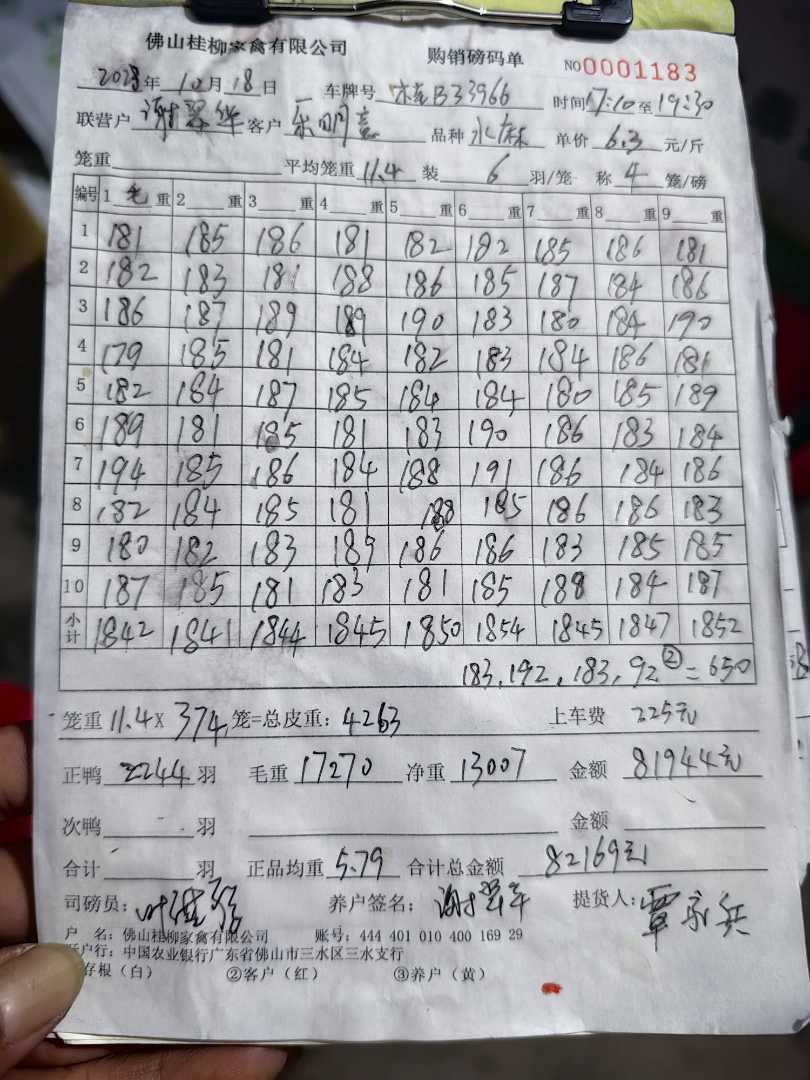 佛山桂柳家禽有限公司 购销磅码单 NO0001183
2023年10月18日 车牌号 B33966 时间17:10至19:30
联营户 谢翠华 客户 乐明意 品种 水麻 单价 6.3 元/斤
笼重 平均笼重11.4 装 6 羽/笼 称 4 笼/磅
编号 1毛重 2 重 3 重 4 重 5 重 6 重 7 重 8 重 9 重
1 181 185 186 181 182 182 185 186 181
2 182 183 181 188 186 185 187 184 186
3 186 187 189 189 190 183 180 184 190
4 179 185 181 184 182 183 184 186 181
5 182 184 187 185 184 184 180 185 189
6 189 181 185 181 183 190 186 183 184
7 194 185 186 184 188 191 186 184 186
8 182 184 185 181 188 185 186 186 183
9 180 182 183 189 186 186 183 185 185
10 187 185 181 183 181 185 188 184 187
小计 1842 1841 1844 1845 1850 1854 1845 1847 1852
183,192,183,92②=650
笼重11.4×374笼=总皮重:4263 上车费 225元
正鸭 2244 羽 毛重 17270 净重 13007 金额 81944元
次鸭 羽 金额
合计 羽 正品均重 5.79 合计总金额 82169元
司磅员: 养户签名: 提货人:覃
户 名:佛山桂柳家禽有限公司 账号:444 401 010 400 169 29
户行:中国农业银行广东省佛山市三水区三水支行
存根(白) ②客户(红) ③养户(黄)